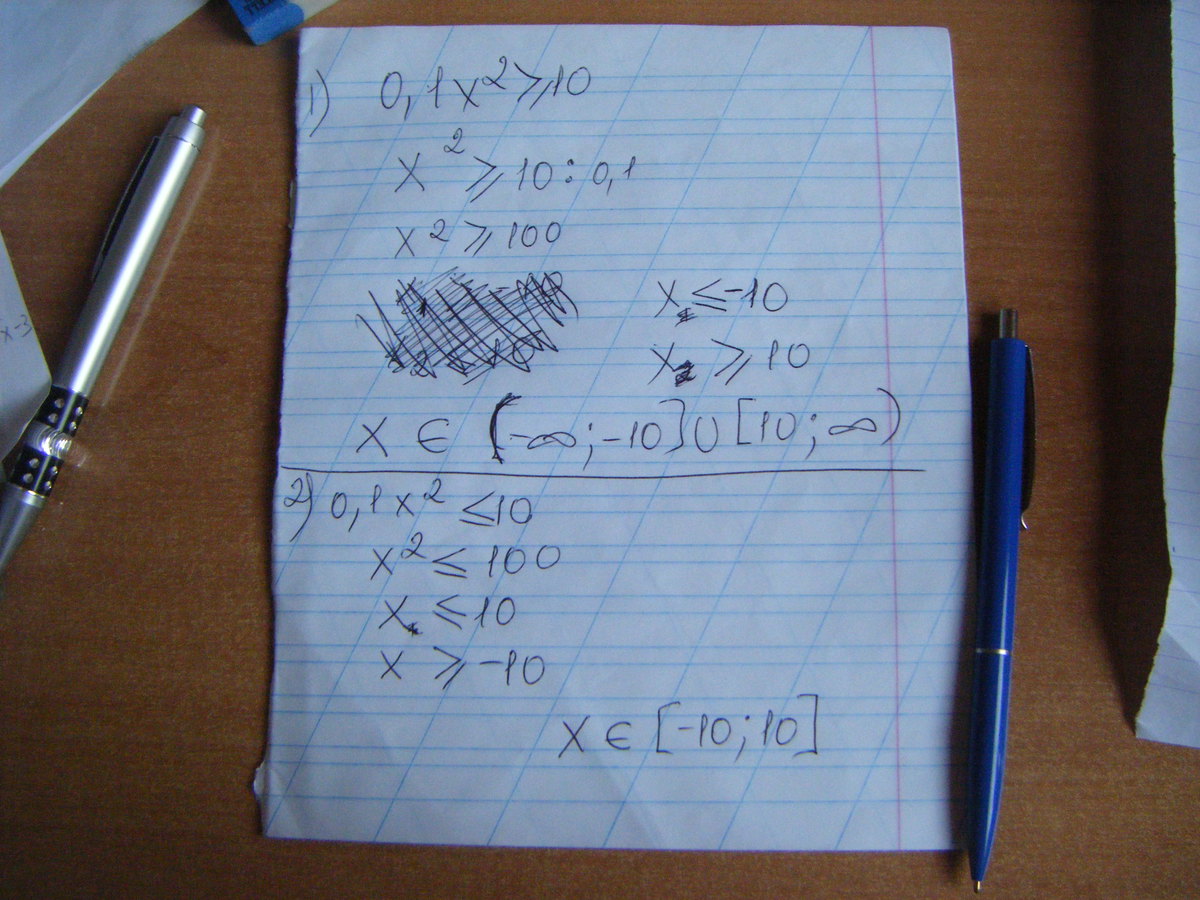 1) 0,1x² ⩾ 10
x² ⩾ 10 : 0,1
x² ⩾ 100
x ⩽ -10
x ⩾ 10
x ∈ (-∞; -10] ∪ [10; ∞)
2) 0,1x² ⩽ 10
x² ⩽ 100
x ⩽ 10
x ⩾ -10
x ∈ [-10; 10]
x-3